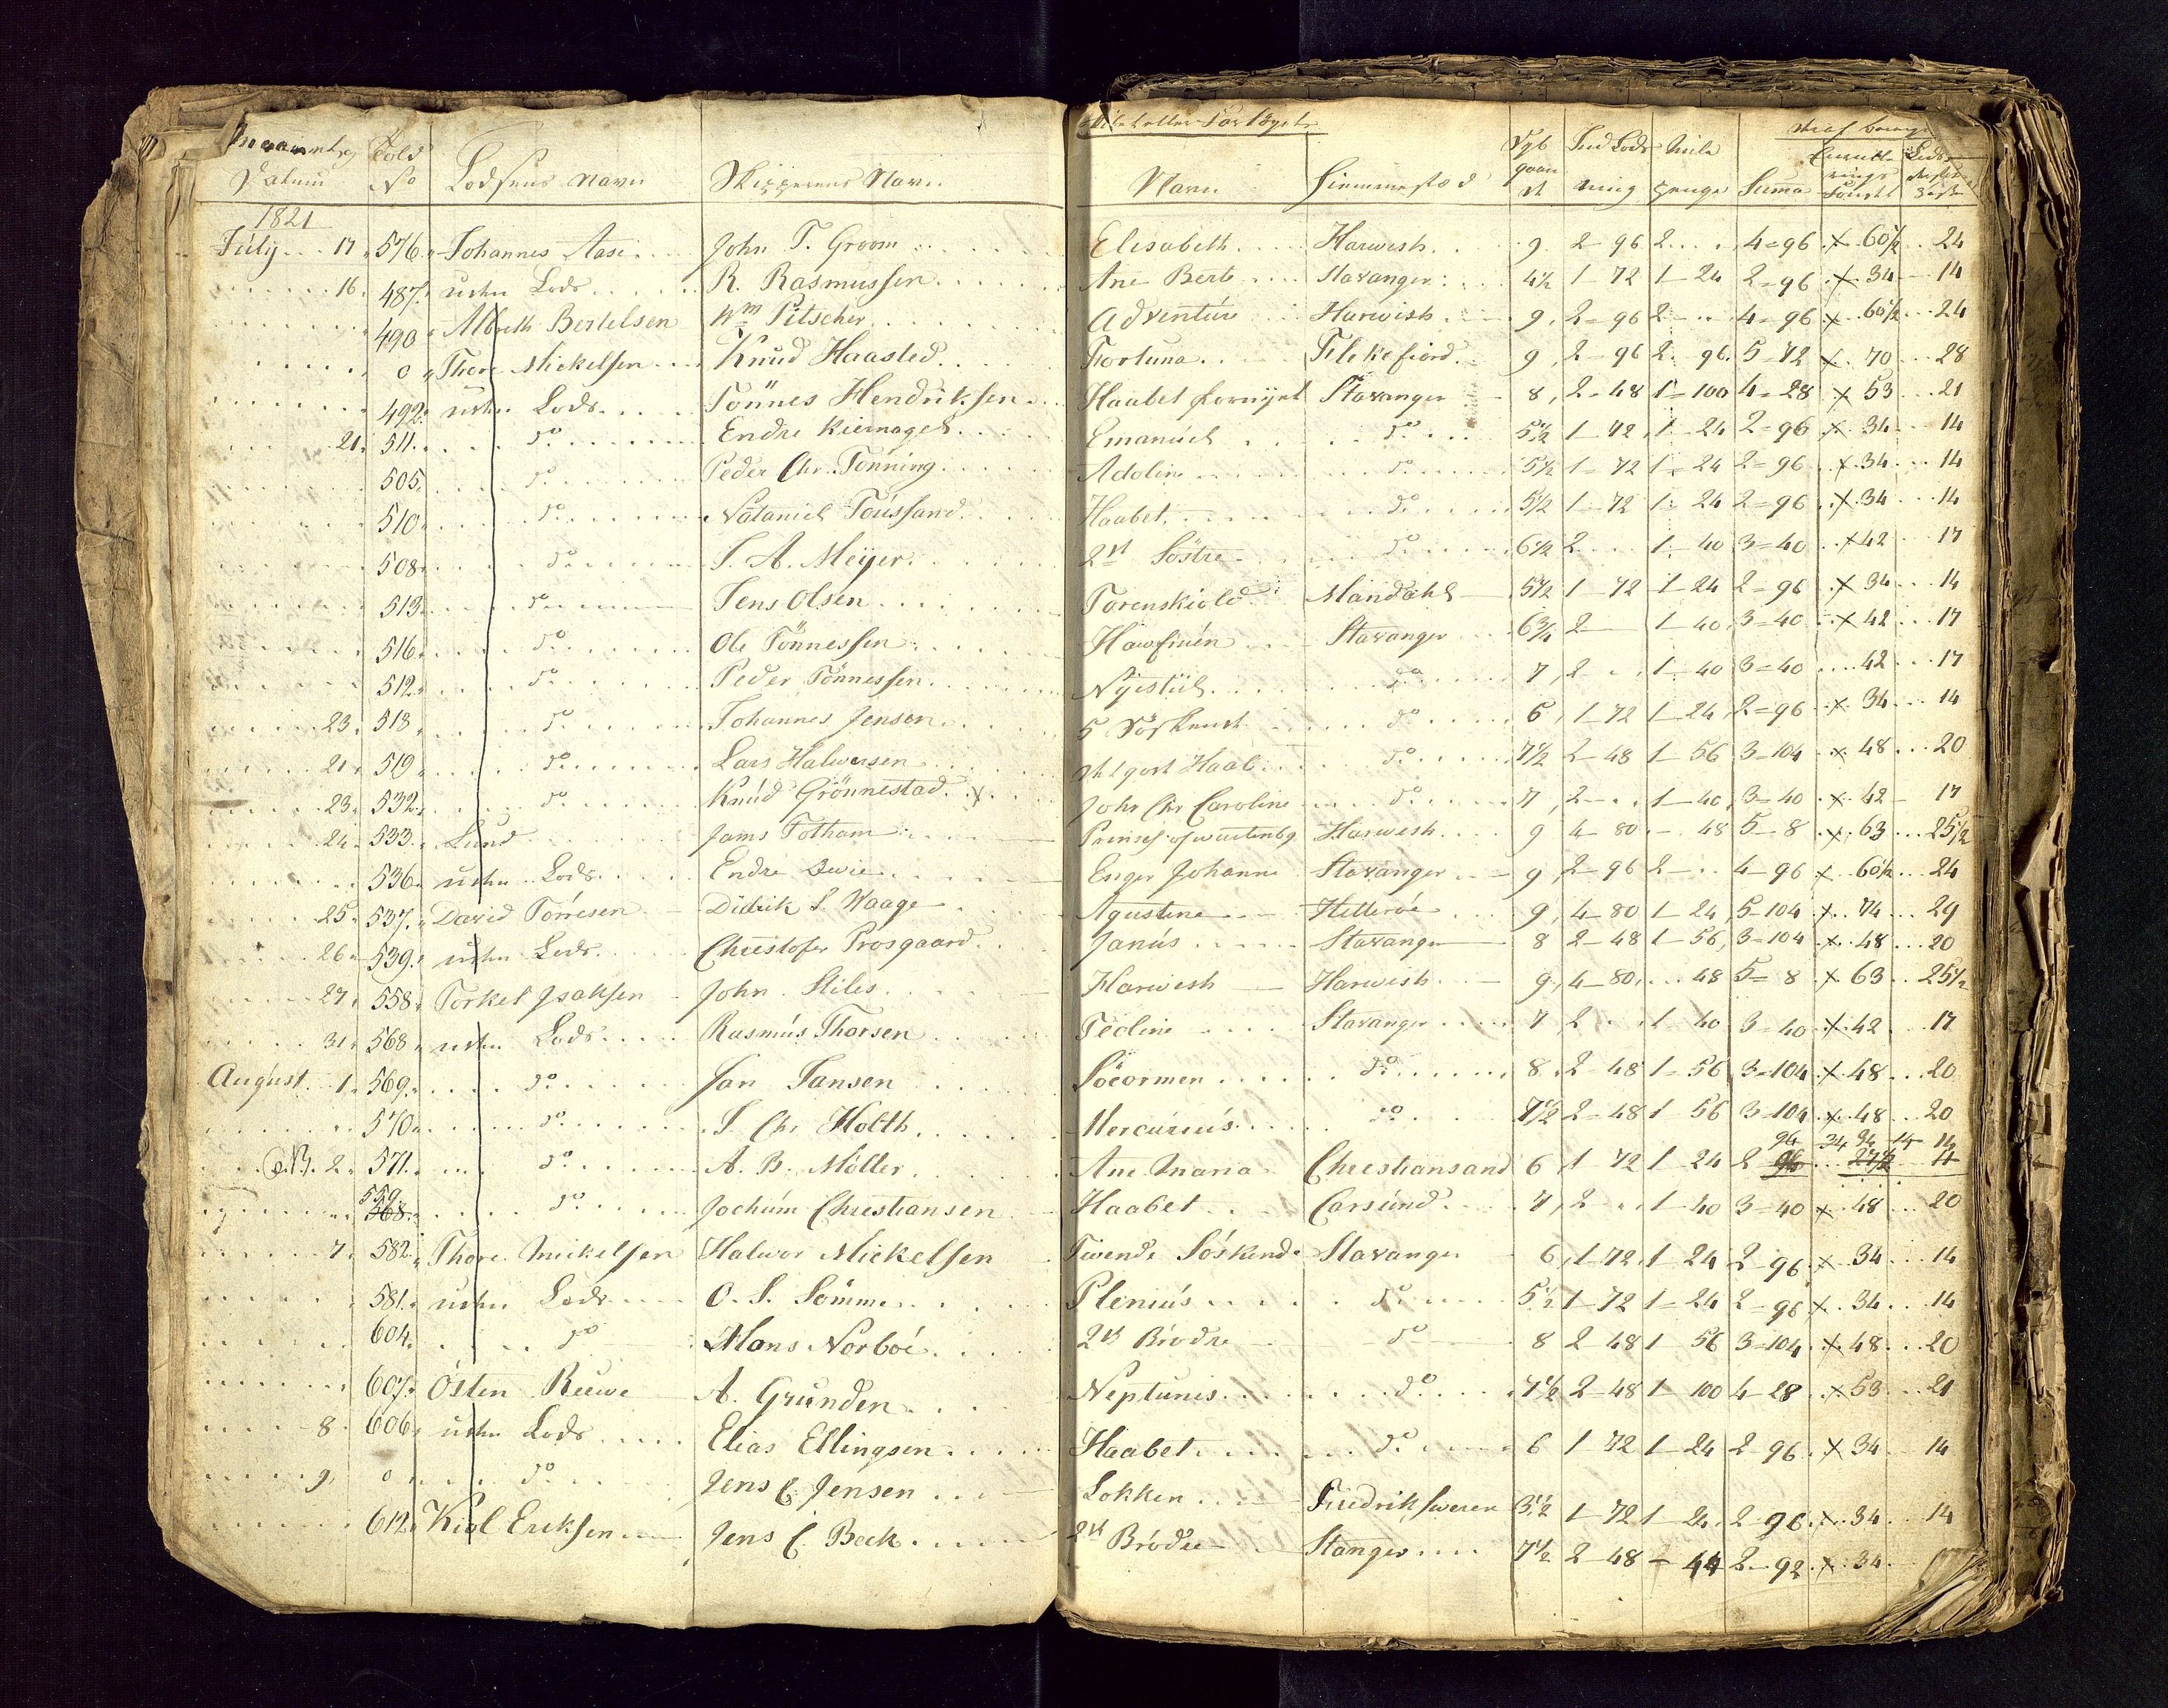 Datum Told No Lodsens Navn Skipperens Navn Navn Hiemmestæd Dyb gaaen de Ind Lods ning Mile penge Suma
1821
July 17 576 Johannes Aase John T. Groom Elisabeth Harwish 9 2-96 2 4=96 x 60½ 24
16 487 uden Lods R. Rasmussen Ane Berte Stavanger 4½ 1-72 1-24 2=96 x 34 14
490 Albreth Bertelsen Wm Pitscher Adventúre Harwish 9 2=96 2 4=96 x 60½ 24
0 Thore Mickelsen Knúd Haasted Fortuna Flekefiord 9 2-96 2 96 5-72 x 70 28
492 uden Lods Tönnes Hendriksen Haabet fornÿet Stavanger 8 2-48 1-100 4-28 x 53 21
21 511 do Endre Kiernaget Emanúel do 5½ 1-72 1-24 2=96 x 34 14
505 do Peder Chr. Tönning Adoline do 5½ 1-72 1-24 2=96 x 34 14
510 do Nataniel Toússand Haabet do 5½ 1-72 1-24 2=96 x 34 14
508 do S. A. Meÿer 2de Söstre do 6½ 2 1-40 3=40 x 42 17
513 do Jens Olsen Torenskiold Mandahl 5½ 1-72 1-24 2=96 x 34 14
516 do Ole Tönnessen Hawfrúen Stavanger 6¾ 2 1-40 3=40 x 42 17
512 do Peder Tönnessen Nÿestúd do 7 2 1-40 3=40 42 17
23 518 do Johannes Jensen 5 Söskende do 6 1-72 1-24 2=96 x 34 14
21 519 do Lars Halworsen Haab do 7½ 2-48 1-56 3-104 x 48 20
23 532 do Knúd Grönnestad x Johr Chr Caroline do 7 2 1-40 3=40 x 42 17
24 533 Lund Jams Totham Harwish 9 4-80 48 5-8 x 63 25½
536 uden Lods Endre Enger Johanne Stavanger 9 2-96 2 4-96 x 60½ 24
25 537 David Torresen Didrik S. Waage Agústine Hitteröe 9 4-80 1-24 5-104 x 74 29
26 539 uden Lods Christofer Prosgaard Janús Stavanger 8 2-48 1-56 3-104 x 48 20
27 558 Torkel Jsaksen John Stiles Harwish Harwish 9 4-80 48 5=8 x 63 25½
31 568 uden Lods Rasmús Thorsen Tedline Stavanger 7 2 1-40 3-40 x 42 17
August 1 569 do Jan Jansen Söeormen do 8 2-48 1-56 3=104 x 48 20
570 do S. Chr Holth Mercúrius do 7½ 2-48 1-56 3-104 x 48 20
2 571 do A. B. Möller Ane Maria Christiansand 6 1-72 1-24 2 96 34 14
559 568 do Jochúm Christiansen Haabet Carsúnd 7 2 1-40 3=40 x 48 20
7 582 Thore Mickelsen Halwor Mickelsen Tvende Söskende Stavanger 6 1-72 1-24 2-96 x 34 14
581 uden Lods O. S. Sömme Pleniús do 5½ 1-72 1-24 2-96 x 34 14
604 do Mons Norböe 2de Brödre do 8 2-48 1-56 3-104 x 48 20
607 Östen Reewe A. Grúnden Neptunis do 7½ 2-48 1-100 4-28 x 53 21
8 606 uden Lods Elias Ellingsen Haabet do 6 1-72 1-24 2-96 x 34 14
9 0 do Jens C. Jensen Lokken Fredrikswern 3½ 1-72 1-24 2-96 x 34 14
612 Kiel Ericksen Jens C. Beck 2de Brödre Stanger 7½ 2-48 -44 2-92 x 34